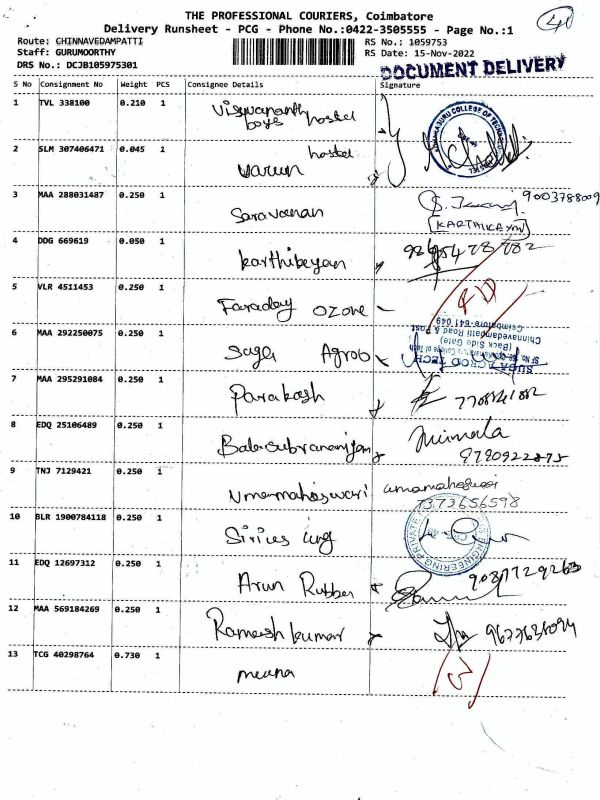 THE PROFESSIONAL COURIERS, Coimbatore
Delivery Runsheet - PCG - Phone No.:0422-3505555 - Page No.:1
Route: CHINNAVEDAMPATTI RS No.: 1059753
Staff: GURUMOORTHY RS Date: 15-Nov-2022
DRS No.: DCJB105975301 DOCUMENT DELIVERY
S No Consignment No Weight PCS Consignee Details Signature
1 TVL 338100 0.210 1 boys hostel
2 SLM 307406471 0.045 1 Varun hostel
3 MAA 288031487 0.250 1 Saravanan 9003788009
(KARTHIKEYAN)
4 DDG 669619 0.050 1 Karthikeyan
5 VLR 4511453 0.250 1 Faraday Ozone
6 MAA 292250075 0.250 1 Suga Agrob
SUGA AGROD TECH
(Back Side Gate)
Chinnavedampatti Road & Post
Coimbatore-641 049
7 MAA 295291084 0.250 1 Parakash
8 EDQ 25106489 0.250 1 Nirmala
9 TNJ 7129421 0.250 1 Umamaheswari umamaheswari
7373656598
10 BLR 1900784118 0.250 1 Sirius ing
11 EDQ 12697312 0.250 1 Arun Rubber
12 MAA 569184269 0.250 1 Ramesh kumar
13 TCG 40298764 0.730 1 meena